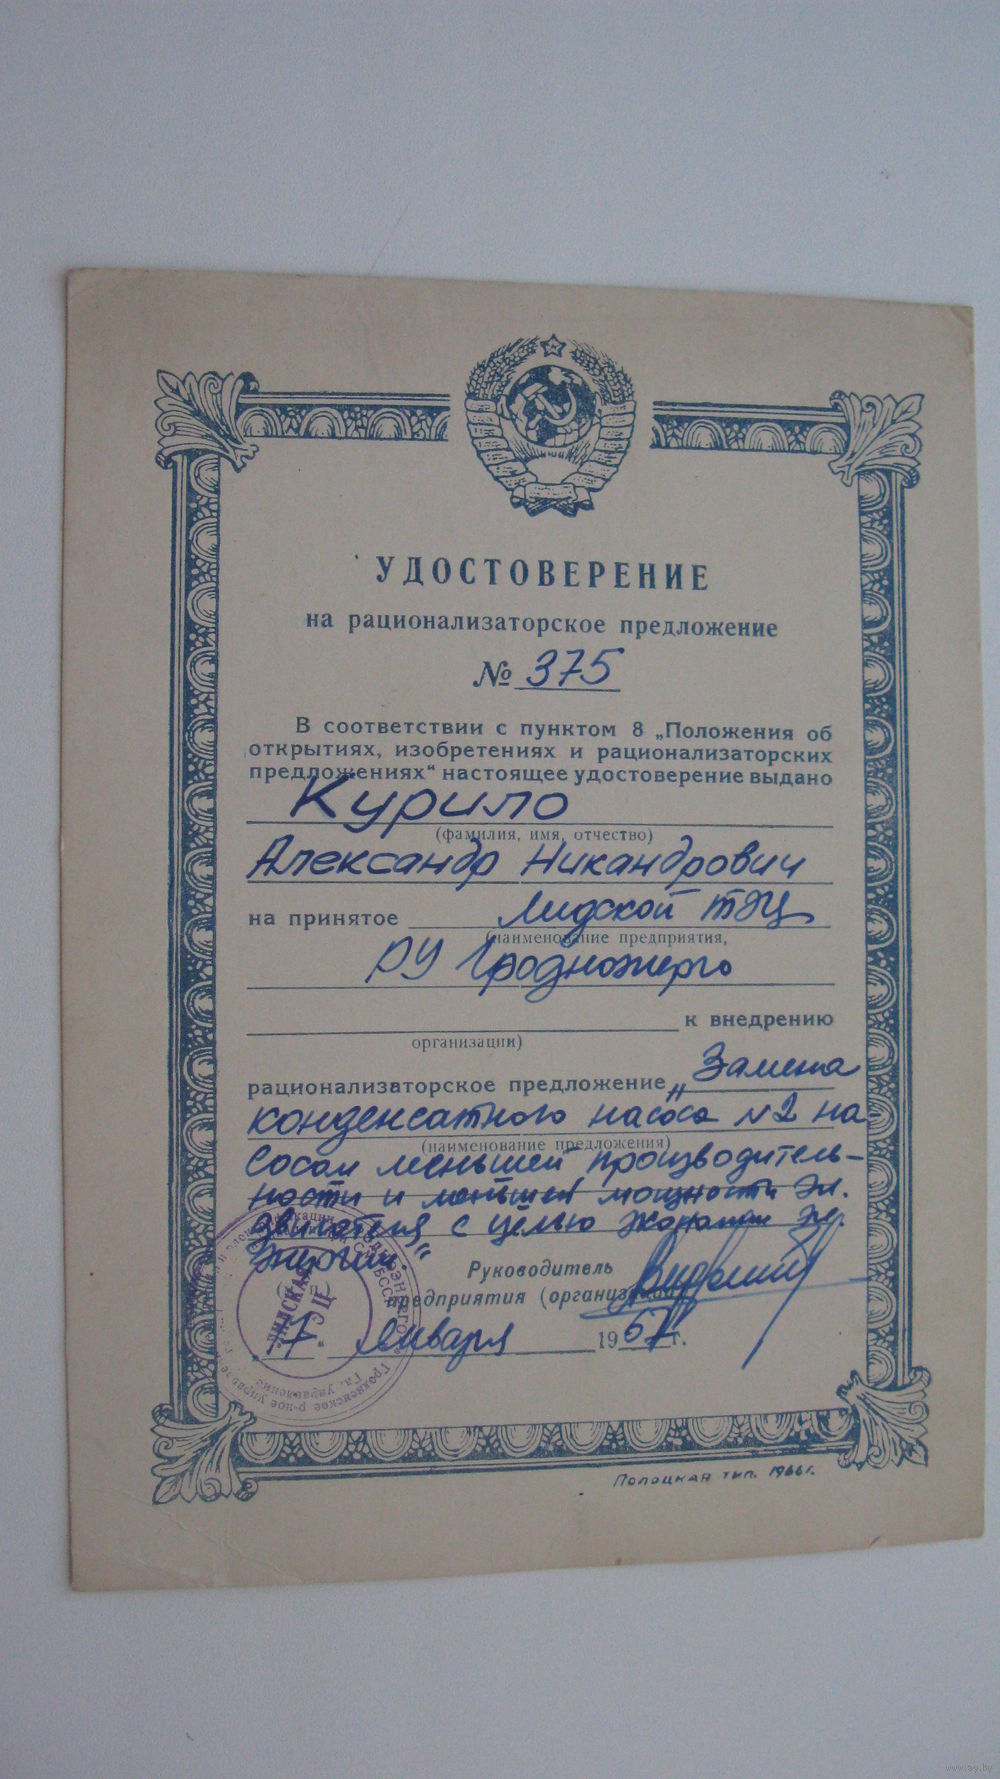 УДОСТОВЕРЕНИЕ
на рационализаторское предложение
№ 375
В соответствии с пунктом 8 „Положения об
открытиях, изобретениях и рационализаторских
предложениях“ настоящее удостоверение выдано
Курило
(фамилия, имя, отчество)
Александр Никандрович
на принятое Лидской ТЭЦ
(наименование предприятия,
РУ Гродноэнерго
к внедрению
организации)
рационализаторское предложение „Замена
конденсатного насоса №2 на
(наименование предложения)
сосом меньшей производитель-
ности и меньшей мощности эл.
двигателя с целью экономии эл.
энергии.“
Руководитель
предприятия (организации)
17 января 1967 г.
ЛИДСКАЯ
ТЭЦ
Гродненское р-ное управление
Полоцкая тип. 1966 г.
www.ay.by